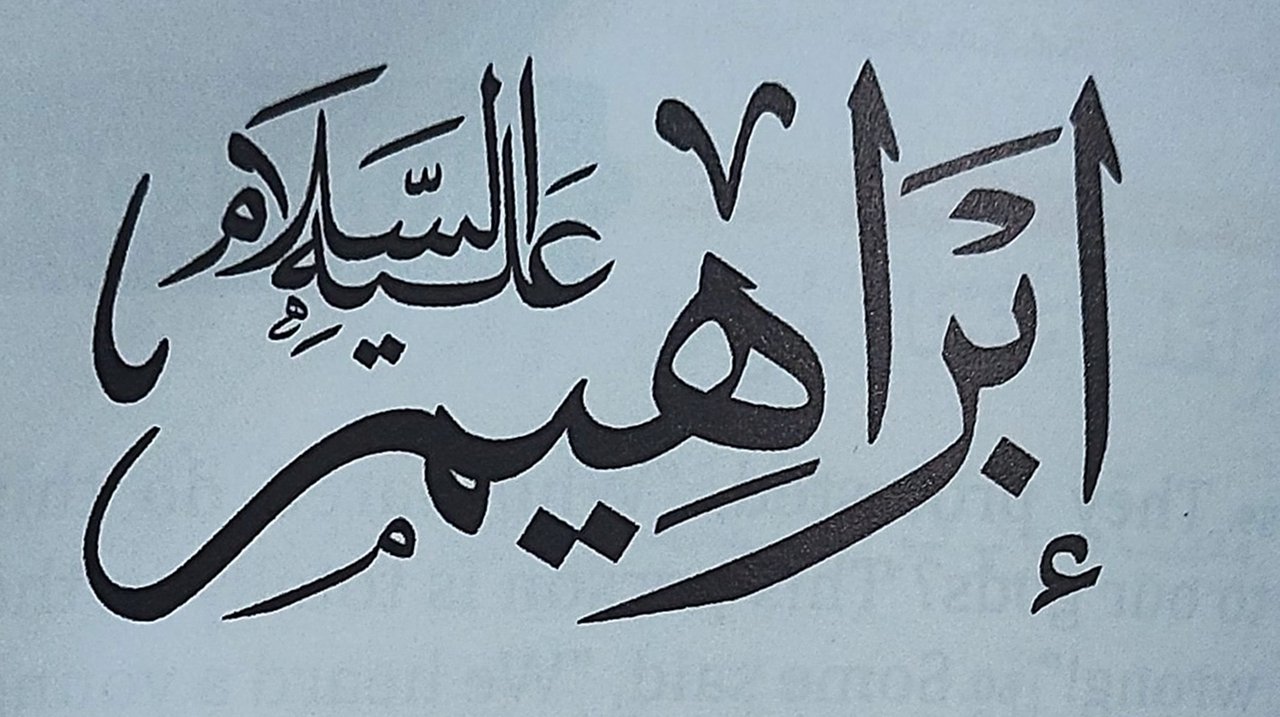 إبْرَاهِيم
عليه السَّلام